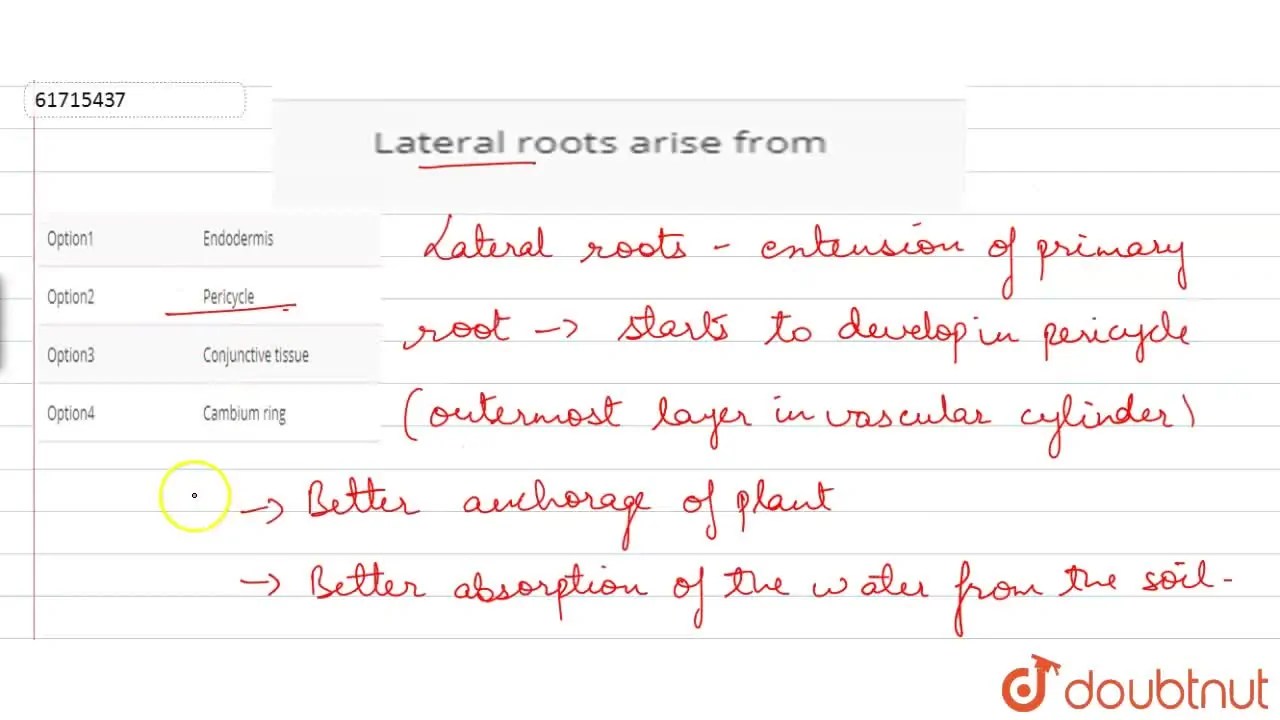 61715437
Lateral roots arise from
Option1 Endodermis
Option2 Pericycle
Option3 Conjunctive tissue
Option4 Cambium ring
Lateral roots - extension of primary
root → starts to develop in pericycle
(outermost layer in vascular cylinder)
→ Better anchorage of plant
→ Better absorption of the water from the soil-
doubtnut